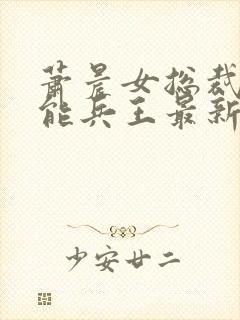 萧晨女总裁
能兵王最新
少安廿二